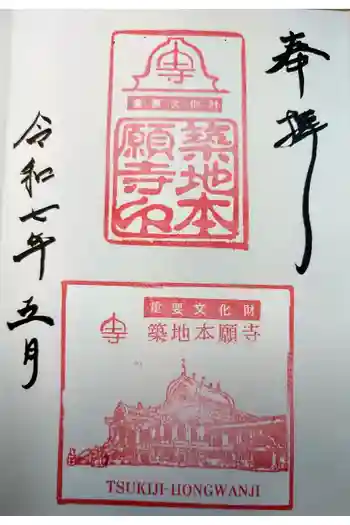 奉拝
寺
重要文化財
築地本
願寺印
重要文化財
寺 築地本願寺
TSUKIJI-HONGWANJI
令和七年五月